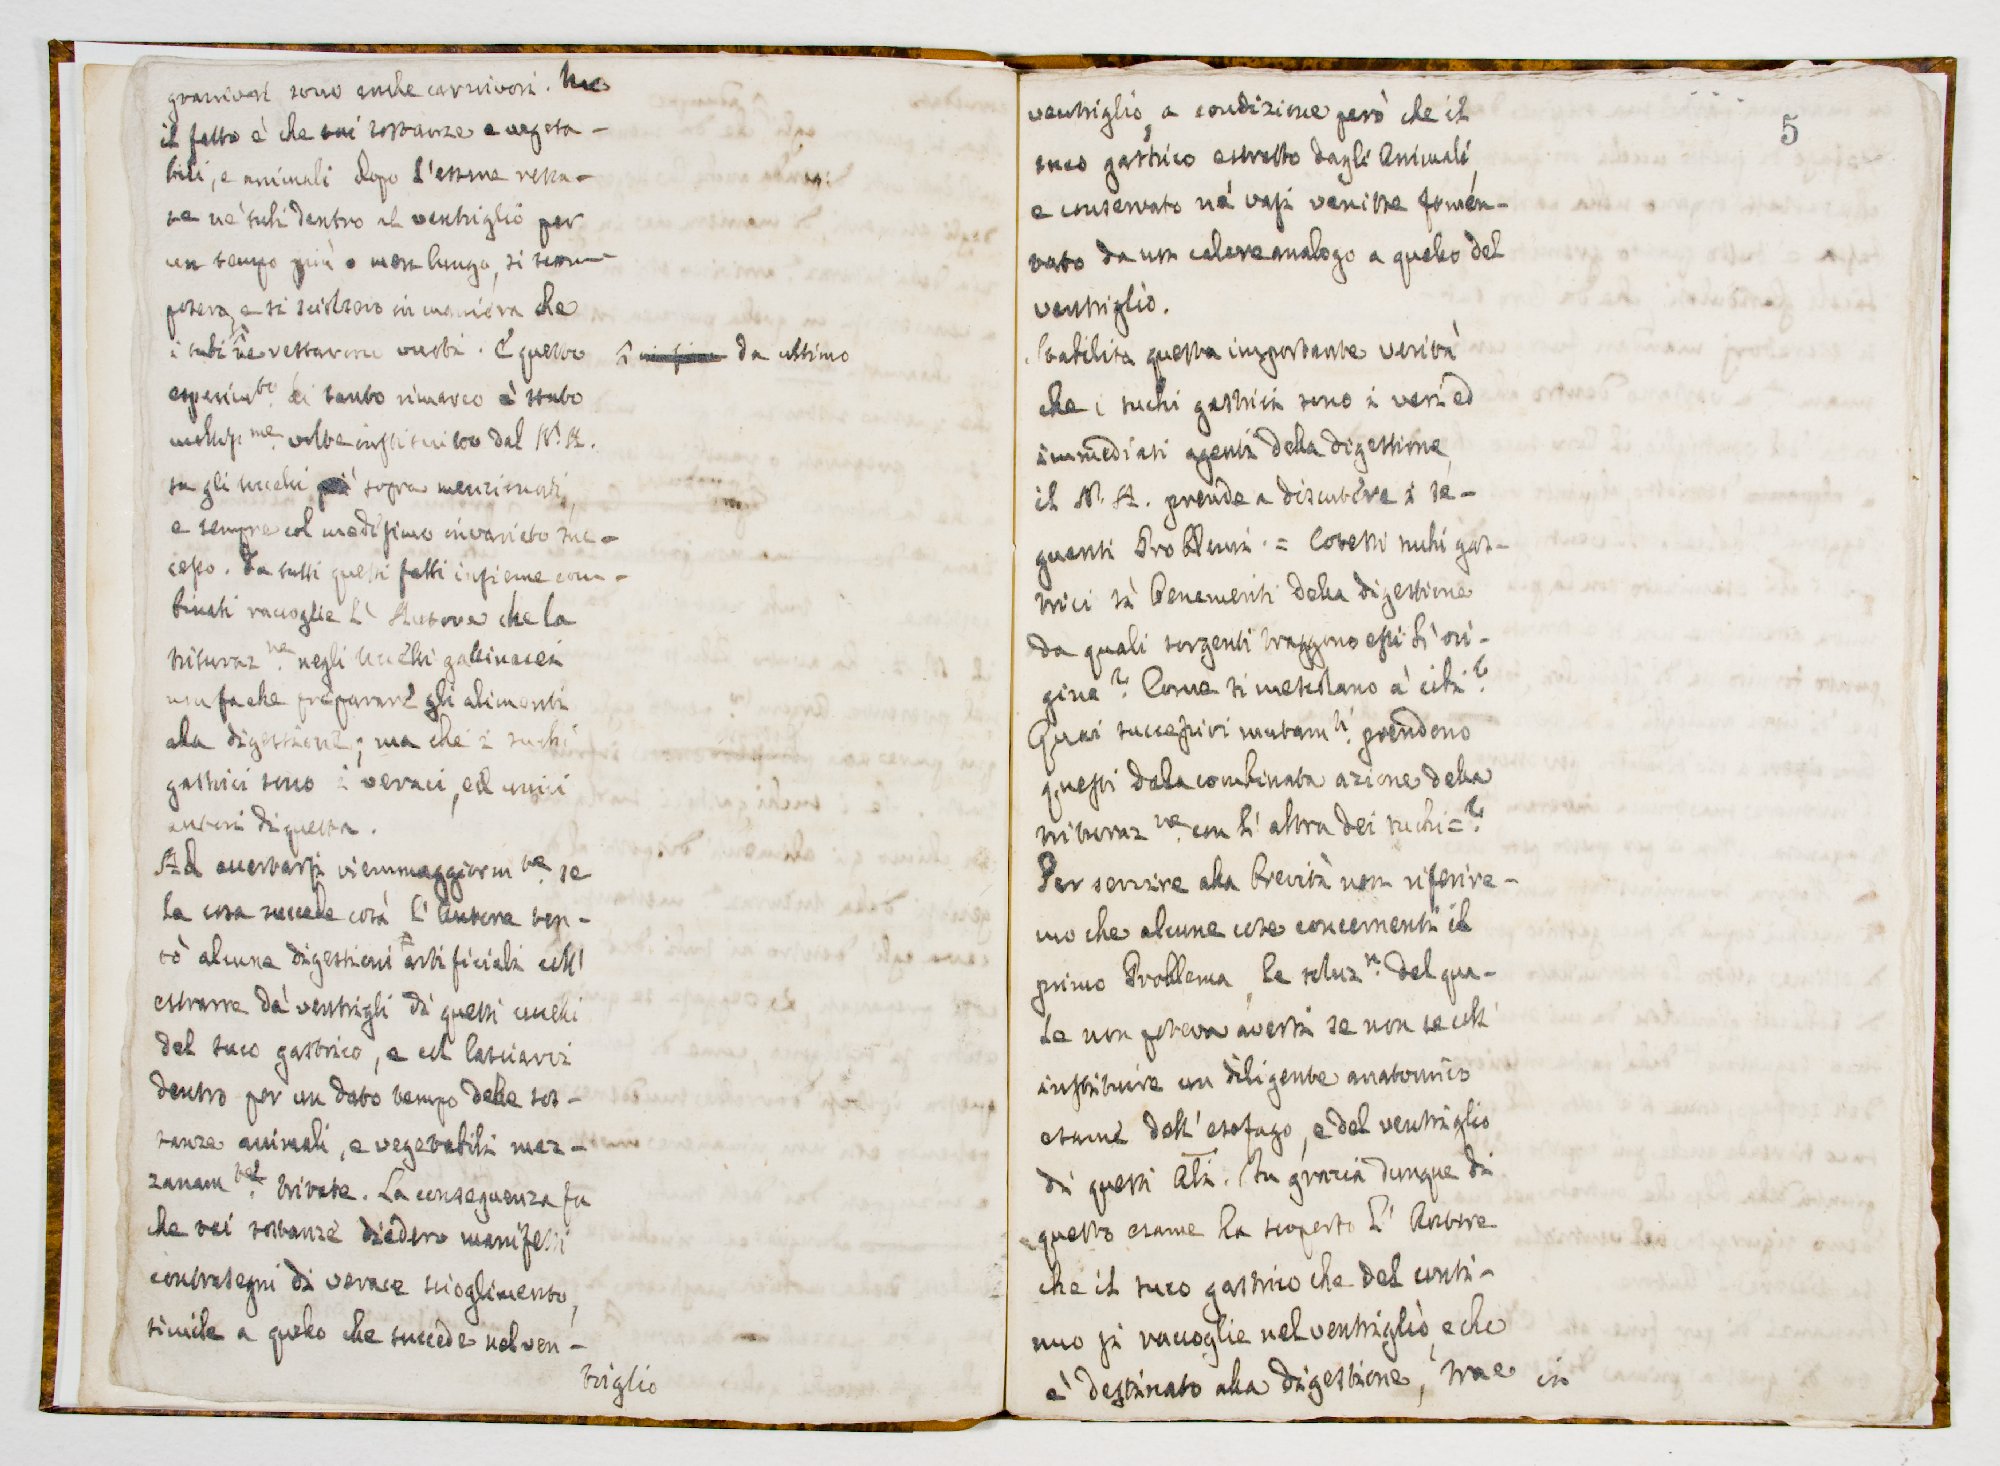 granivori sono anche carnivori. Ma
il fatto è che tai sostanze e vegeta-
bili, e animali dopo l'essere resta-
te ne' tubi dentro al ventriglio per
un tempo più o men lungo, si scom-
posero, e si sciolsero in maniera che
i tubi ne restarono vuoti. E questo
da ultimo
esperim.to di tanto rimarco è stato
moltiss.me volte instituito dal N. A.
su gli uccelli sopra menzionati,
e sempre col medesimo invariato suc-
cesso. Da tutti questi fatti insieme com-
binati raccoglie l'Autore che la
trituraz.ne negli Uccelli gallinacei
non fa che preparare gli alimenti
alla digestione; ma che i suchi
gastrici sono i veraci, ed unici
autori di questa.
Ad accertarsi viemmaggiorm.te se
la cosa succede così l'Autore ten-
tò alcune digestioni artificiali coll'
estrarre da' ventrigli di questi uccelli
del suco gastrico, e col lasciarvi
dentro per un dato tempo delle sos-
tanze animali, e vegetabili mez-
zanam.te tritate. La conseguenza fu
che tai sostanze diedero manifesti
contrasegni di verace scioglimento,
simile a quello che succede nel ven-
triglio
5
ventriglio, a condizione però che il
suco gastrico estratto dagli Animali,
e conservato ne' vasi venisse fomen-
tato da un calore analogo a quello del
ventriglio.
Stabilita questa importante verità
che i suchi gastrici sono i veri ed
immediati agenti della digestione,
il N. A. prende a discutere i se-
guenti Problemi. = Cotesti suchi gas-
trici sì benemeriti della digestione
da quali sorgenti traggono essi l'ori-
gine? Come si mescolano a' cibi?
Quai successivi mutam.ti prendono
questi dalla combinata azione della
trituraz.ne con l'altra dei suchi =?
Per servire alla brevità non riferire-
mo che alcune cose concernenti il
primo Problema, la soluz.ne del qua-
le non poteva aversi se non se coll'
instituire un diligente anatomico
esame dell'esofago, e del ventriglio
di questi Ali. In grazia dunque di
questo esame ha scoperto l'Autore
che il suco gastrico che del conti-
nuo si raccoglie nel ventriglio, e che
è destinato alla digestione, trae in